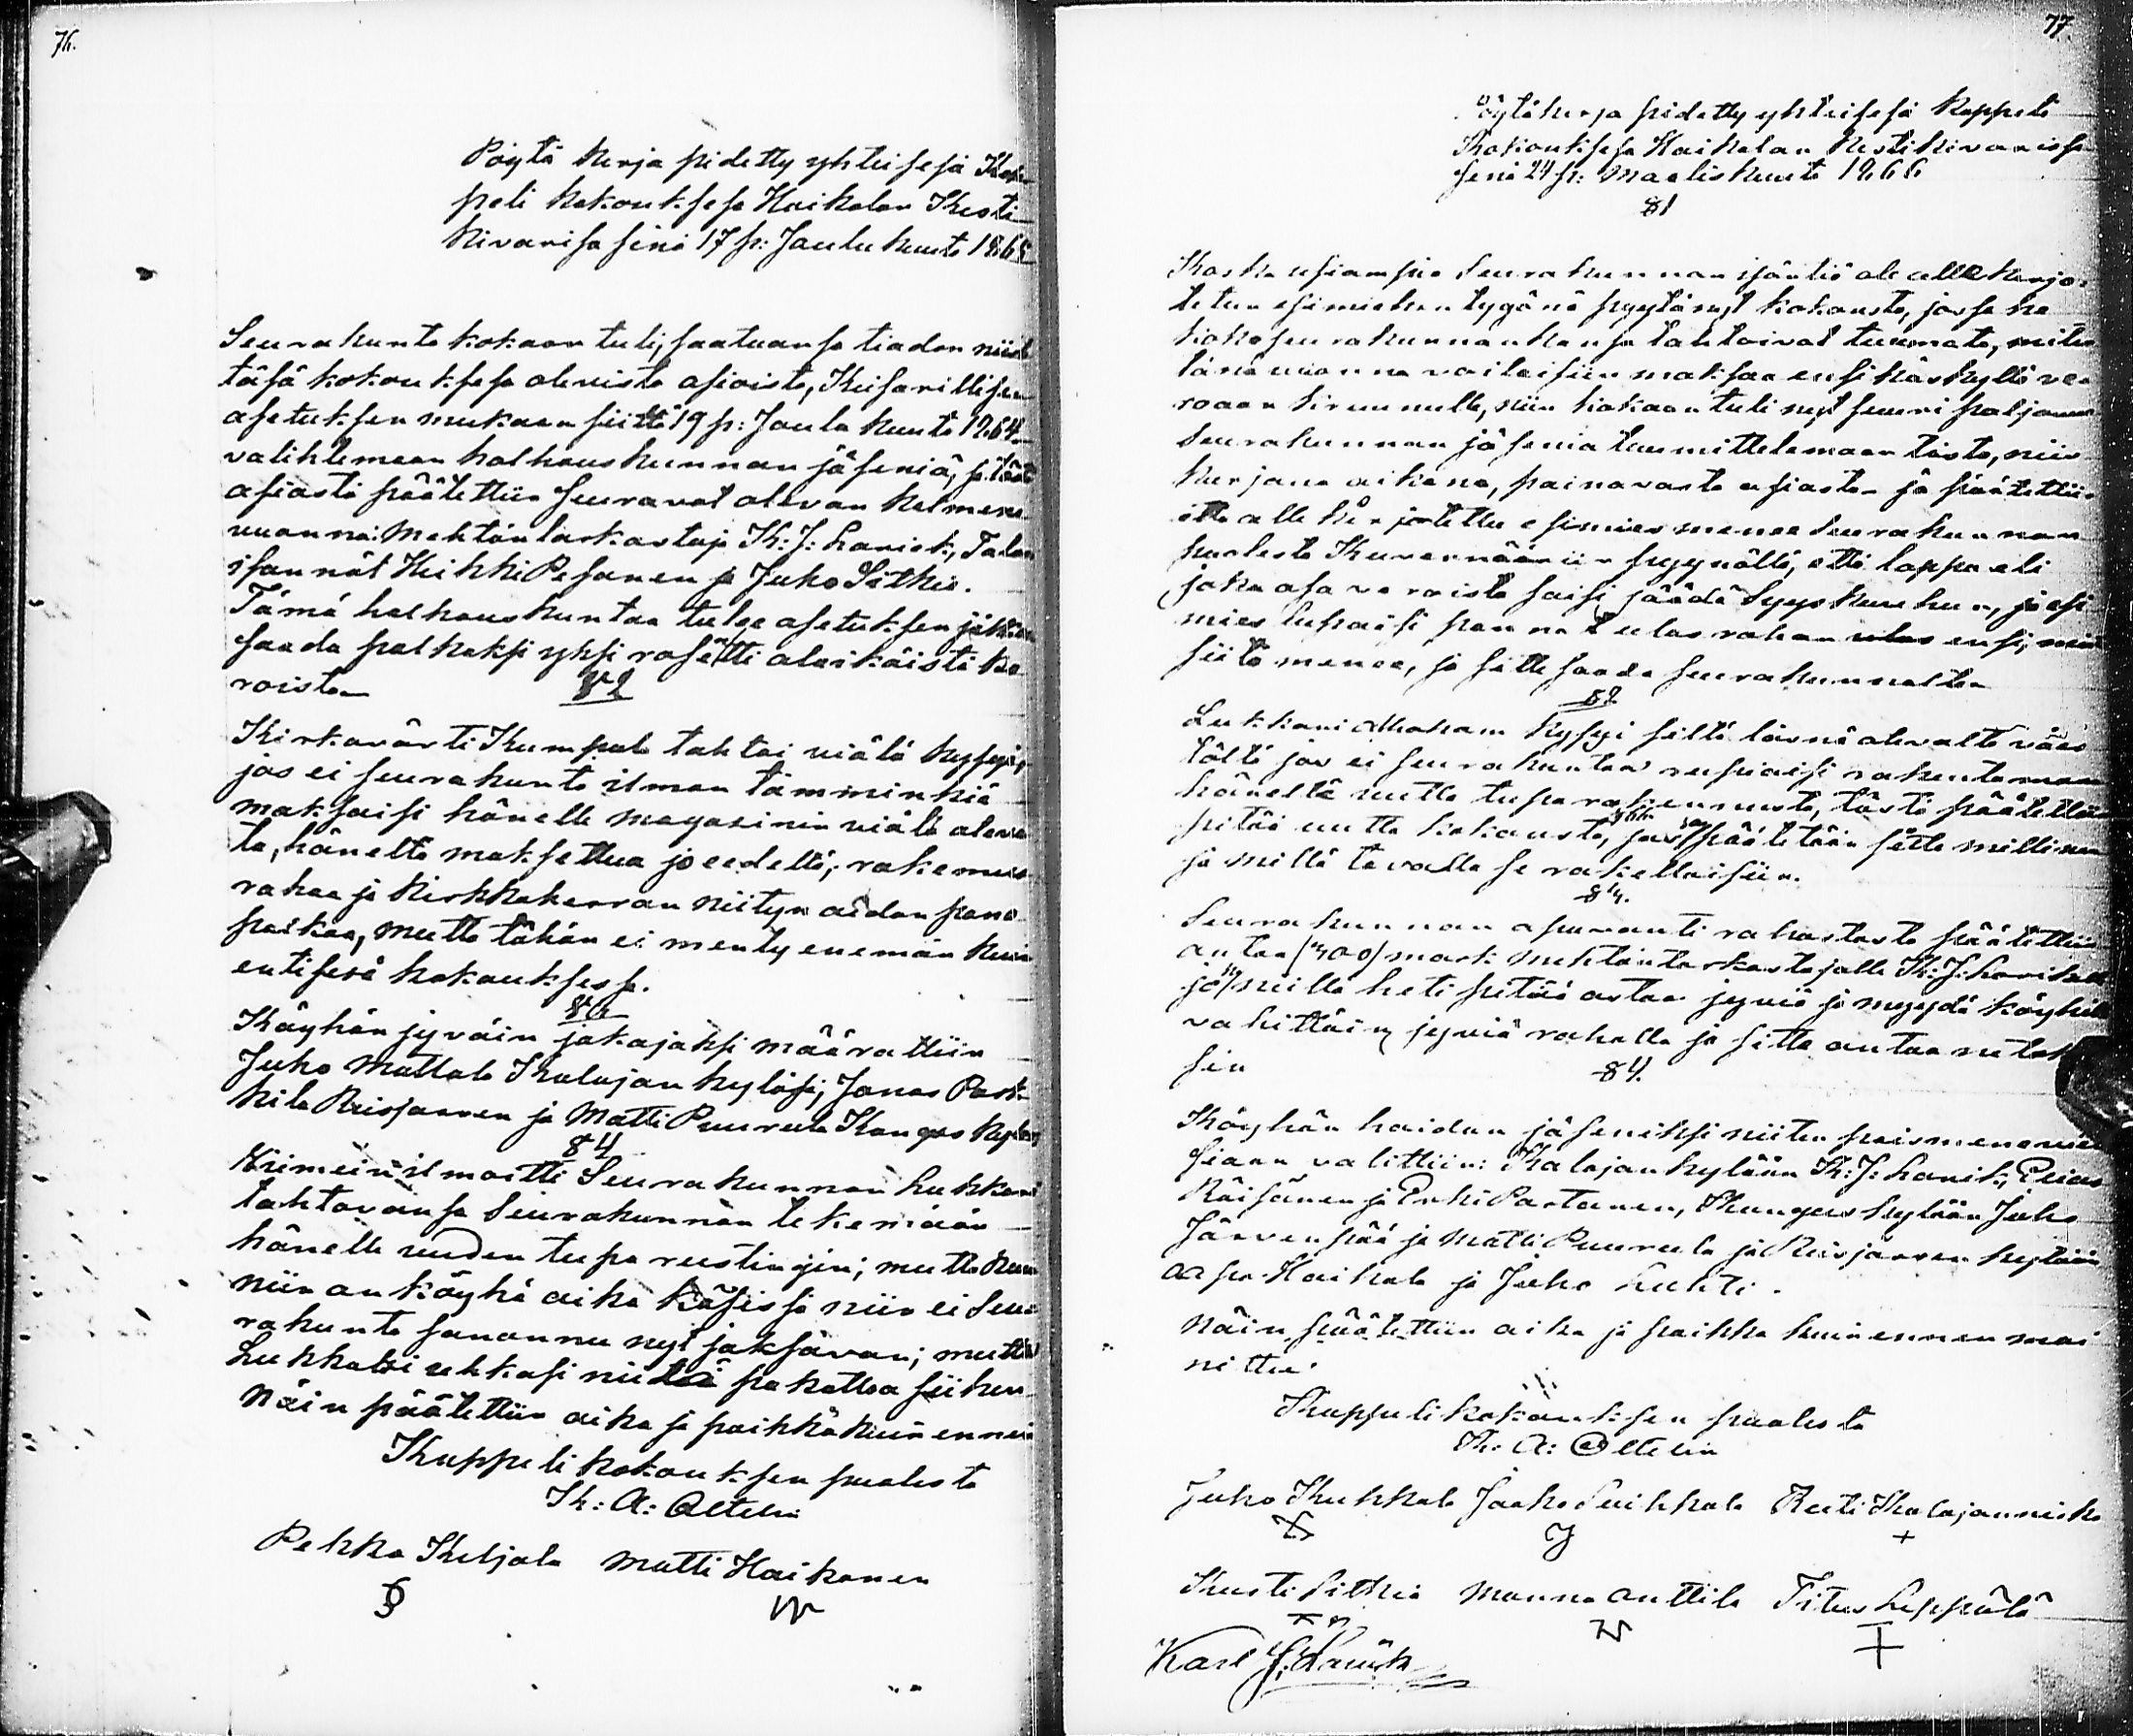 76.
Pöytä kerja pidetty yhteisesä Kap
peli kokouksesa Haikolan Kesti
kivarisa sinä 17 p: Joulu kuuta 1865
Seurakunta kokoon tuli, saatuansa tiedon niistä
täsä kokouksesa olevista asioista, Keisarillisen
asetuksen mukaan siittä 19 p: Joulu kuuta 1864
valihtemaan holhouskunnan jäseniä, ja tästä
asiasta päätettiin seuravat olevan kolmena
vuonna: Mehtäntarkastaja K: J: Lanick, Talon
isännät Heikki Pesonen ja Juho Sitkia.
Tämä holhouskuntaa tulee asetuksen jälkeen
saada palkaksi yksi rosetti alaikäistä ka
roista
§2
Kirkovärti Kumpula tahtoi viälä kysyä,
jos ei seurakunta ilman tämminkiä
maksaisi hänelle magasinin viälä aleva
ta, hänelta maksettua jo eedeltä, rakennus
rahaa ja kirkkoherran niityn aidan pano
palkaa, mutta tähän ei menty enemän kuin
entisesä kokouksesa.
§3
Käyhän jyväin jakajaksi määrattiin
Juho Mattala Kalajan kyläsä, Jonas Park
kila Reisjarven ja Matti Puurula Kangas kylän
§4
Viimein ilmoitti Seurakunnan lukkari
tahtovansa Seurakunnan tekemään
hänelle uuden tupa rustingin; mutta kun
niin on köyhä aika käsissä niin ei Seu
rakunta sanonnu nyt jaksavan; mutta
Lukkari uhkasi niitä pakottaa siihen
Näin päätettiin aika ja paikka kuin ennen
Kappeli kokouksen puolesta
K: A: Oltelin
Pekka Keljala Matti Haikonen
77.
Pöytäkerja pidetty yhteisesä Kappeli
Kokouksesa Haikolan Kestikivarissa
sinä 24 p: Maaliskuuta 1866
§1
Koska usiampia Seurakunnan isäntiä ole alle kerjo
tetun esimiehen tygönä pyytänyt kokousta, josa he
koko seurakunnan kansa tahtoivat tuumata, miten
tänä vuonna voitaisiin maksaa ensi käskyllä ve
roaan kruunulle, niin kokoon tuli nyt suuri paljous
Seurakunnan jäseniä tuumittelemaan tästä, niin
kurjana aikana, painavasta asiasta ja päätettiin
että alle kerjotettu esimies menee Seurakunnan
puolesta Kuvernöörin pyynöllä, että loppu eli
joku osa veroista saisi jäädä Syyskuuhun, ja esi
mies lupaisi panna ulos rahan ensi, mitä
siitä menee, ja sitte saada seurakunnalta
§2
Lukkari Abraham kysyi siltä läsnä olevalta väes
tältä jos ei seurakuntaa rupiaisi rakentamaan
häneltä uutta tupa rakennusta, tästä päätettiin
pitää uutta kokousta, josa päätetään sitte millinen
ja millä tavalla se rakettaisiin.
§3.
Seurakunnan apuvanti rahastosta päätettiin
antaa (400) mark Mehtäntarkastajalle K: J: Lanikalle
ja niillä heti pitää ostaa jyviä ja myydä köyhille
vähittäin jyviä rahalla ja sitte antaa ne takai
sin
§4.
Köyhän hoidon jäseniksi niiten pois menevien
siaan valittiin: Kalajan kylään K: J: Lanik, Elias
Räisänen ja Erki Partanen, Kangas kylään Juho
Järvenpää ja Matti Puurula ja Reisjärven kylään
Aapo Haikola ja Juho Luhti.
Näin päätettiin aika ja paikka kuin ennen mai
nittu.
Kappelikokouksen puolesta
K: A: Oltelin
Juho Kukkola Jaako Suikkola Ruti Kalajanniska
Kusti Sitkia Manna Anttila Titus Leppälä
Karl J. Lanick